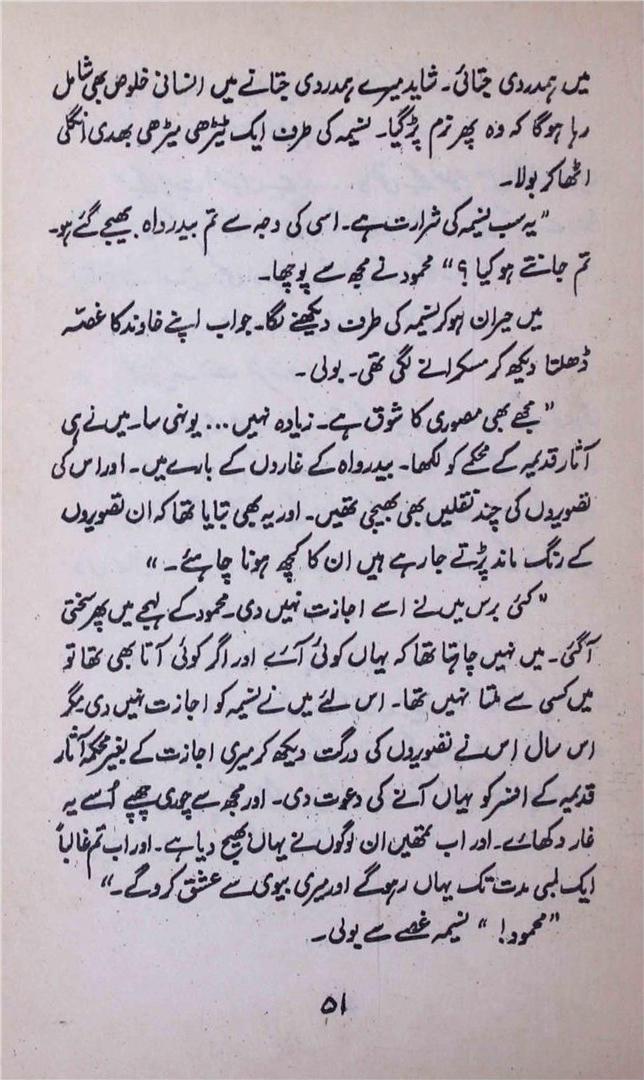 میں ہمدردی جتائی۔ شاید میرے ہمدردی جتانے میں انسانی خلوص بھی شامل
رہا ہوگا کہ وہ پھر نرم پڑ گیا۔ نسیمہ کی طرف ایک ٹیڑھی میڑھی بھدی انگلی
اٹھا کر بولا۔
"یہ سب نسیمہ کی شرارت ہے۔ اسی کی وجہ سے تم بیدرواہ بھیجے گئے ہو۔
تم جانتے ہو کیا؟" محمود نے مجھ سے پوچھا۔
میں حیران ہو کر نسیمہ کی طرف دیکھنے لگا۔ جو اب اپنے خاوند کا غصّہ
ڈھلتا دیکھ کر مسکرانے لگی تھی۔ بولی۔
"مجھے بھی مصوری کا شوق ہے۔ زیادہ نہیں... یونہی سا۔ میں نے ہی
آثار قدیمہ کے محکمے کو لکھا۔ بیدرواہ کے غاروں کے بارے میں۔ اور اس کی
تصویروں کی چند نقلیں بھی بھیجی تھیں۔ اور یہ بھی بتایا تھا کہ ان تصویروں
کے رنگ ماند پڑتے جارہے ہیں ان کا کچھ ہونا چاہئے۔"
"کئی برس میں نے اسے اجازت نہیں دی۔ محمود کے لہجے میں پھر سختی
آگئی۔ میں نہیں چاہتا تھا کہ یہاں کوئی آئے اور اگر کوئی آتا بھی تھا تو
میں کسی سے ملتا نہیں تھا۔ اس لئے میں نے نسیمہ کو اجازت نہیں دی مگر
اس سال اس نے تصویروں کی درگت دیکھ کر میری اجازت کے بغیر محکمہ آثار
قدیمہ کے افسر کو یہاں آنے کی دعوت دی۔ اور مجھ سے چوری چھپے اُسے یہ
غار دکھائے۔ اور اب تمھیں ان لوگوں نے یہاں بھیج دیا ہے۔ اور اب تم غالباً
ایک لمبی مدت تک یہاں رہوگے اور میری بیوی سے عشق کروگے۔"
"محمود!" نسیمہ غصے سے بولی۔
۵۱